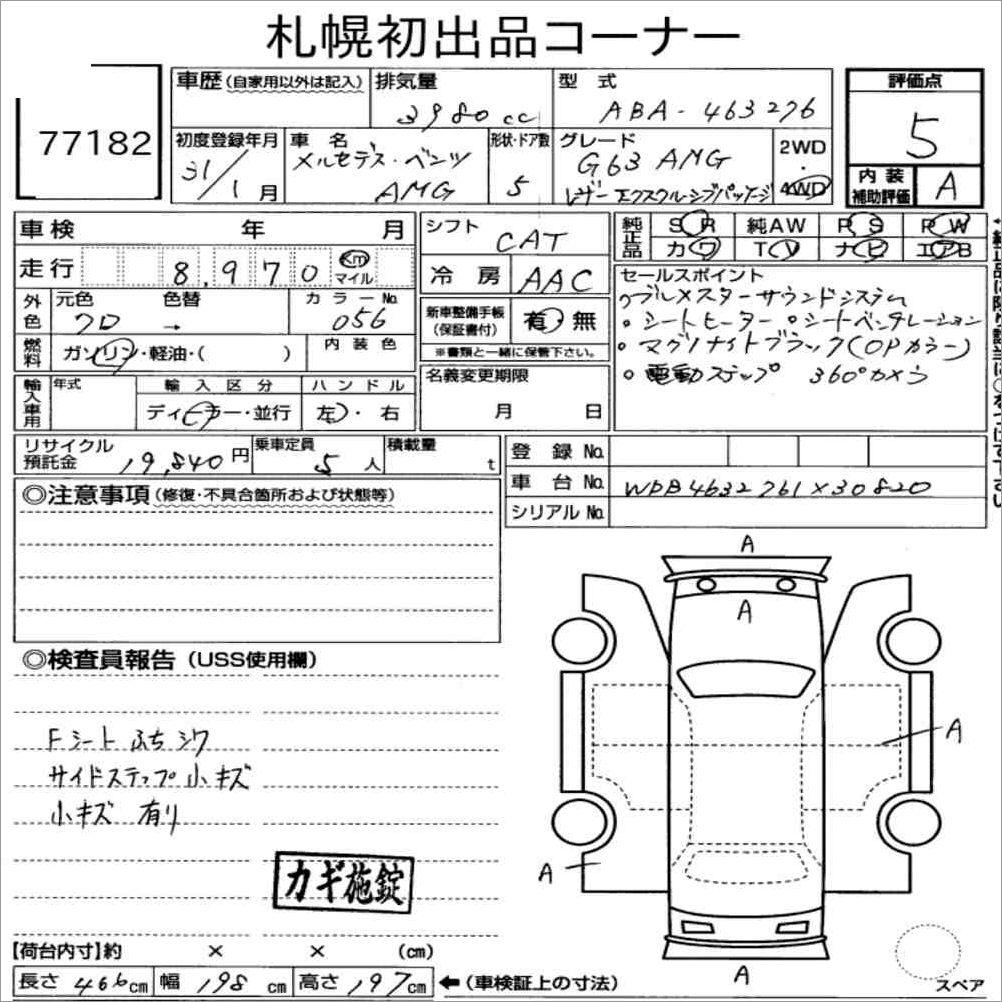 札幌初出品コーナー
77182
車歴(自家用以外は記入)
排気量
3980cc
型 式
ABA-463276
評価点
5
初度登録年月
31/1月
車 名
メルセデス・ベンツ
AMG
形状・ドア数
5
グレード
G63 AMG
レザーエクスクルーシブパッケージ
2WD
・
4WD
内 装
補助評価
A
車検 年 月
シフト
CAT
純正品
SR 純AW PS PW
カワ TV ナビ エアB
走行 8,970 Km マイル
冷 房
AAC
セールスポイント
ブルメスターサウンドシステム
○シートヒーター ○シートベンチレーション
○マグノナイトブラック(OPカラー)
○電動ステップ 360°カメラ
外色
元色 クロ
色替 →
カラーNo.
056
新車整備手帳
(保証書付)
有・無
※書類と一緒に保管下さい。
燃料
ガソリン・軽油・( )
内装色
輸入車用
年式
輸入区分
ディーラー・並行
ハンドル
左・右
名義変更期限
月 日
リサイクル
預託金 19,840円
乗車定員
5人
積載量
t
登 録 No.
車 台 No. WDB4632761X30820
シリアル No.
◎注意事項(修復・不具合箇所および状態等)
◎検査員報告(USS使用欄)
Fシート ふち シワ
サイドステップ 小キズ
小キズ 有り
カギ施錠
A
A
A
A
A
スペア
【荷台内寸】約 × × (cm)
長さ 466cm 幅 198cm 高さ 197cm ←(車検証上の寸法)